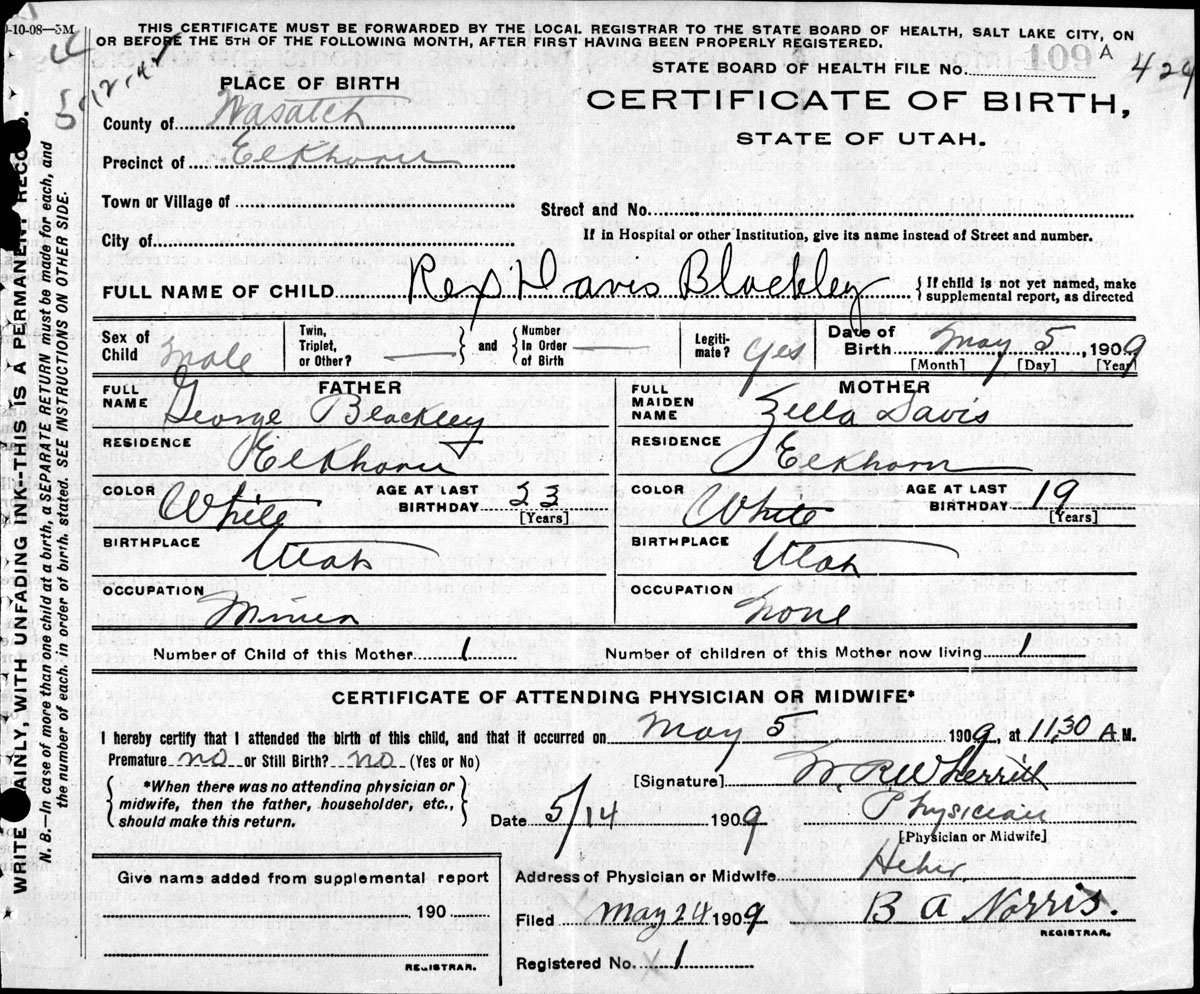 0-10-08—5M
THIS CERTIFICATE MUST BE FORWARDED BY THE LOCAL REGISTRAR TO THE STATE BOARD OF HEALTH, SALT LAKE CITY, ON
OR BEFORE THE 5TH OF THE FOLLOWING MONTH, AFTER FIRST HAVING BEEN PROPERLY REGISTERED.
STATE BOARD OF HEALTH FILE No. 109 A 424
CERTIFICATE OF BIRTH,
STATE OF UTAH.
PLACE OF BIRTH
County of Wasatch
Precinct of Elkhorn
Town or Village of
Street and No.
City of
If in Hospital or other Institution, give its name instead of Street and number.
FULL NAME OF CHILD Rex Davis Blackley { If child is not yet named, make
supplemental report, as directed
Sex of Child Male
Twin, Triplet, or Other? — } and { Number In Order of Birth —
Legiti-mate? Yes
Date of Birth May 5, 1909
[Month] [Day] [Year]
FATHER
FULL NAME George Blackley
RESIDENCE Elkhorn
COLOR White AGE AT LAST BIRTHDAY 23 [Years]
BIRTHPLACE Utah
OCCUPATION Miner
MOTHER
FULL MAIDEN NAME Zella Davis
RESIDENCE Elkhorn
COLOR White AGE AT LAST BIRTHDAY 19 [Years]
BIRTHPLACE Utah
OCCUPATION None
Number of Child of this Mother 1 Number of children of this Mother now living 1
CERTIFICATE OF ATTENDING PHYSICIAN OR MIDWIFE*
I hereby certify that I attended the birth of this child, and that it occurred on May 5 1909, at 11.30 A M.
Premature no or Still Birth? no (Yes or No)
{ *When there was no attending physician or
midwife, then the father, householder, etc.,
should make this return. }
[Signature] W. R. Wherritt
Date 5/14 1909 Physician
[Physician or Midwife]
Address of Physician or Midwife Heber
Filed May 24 1909 B A Norris.
REGISTRAR.
Registered No. 1
Give name added from supplemental report
190
REGISTRAR.
WRITE AINLY, WITH UNFADING INK--THIS IS A PERMANENT RECO D.
N. B.—In case of more than one child at a birth, a SEPARATE RETURN must be made for each, and
the number of each, in order of birth, stated. SEE INSTRUCTIONS ON OTHER SIDE.